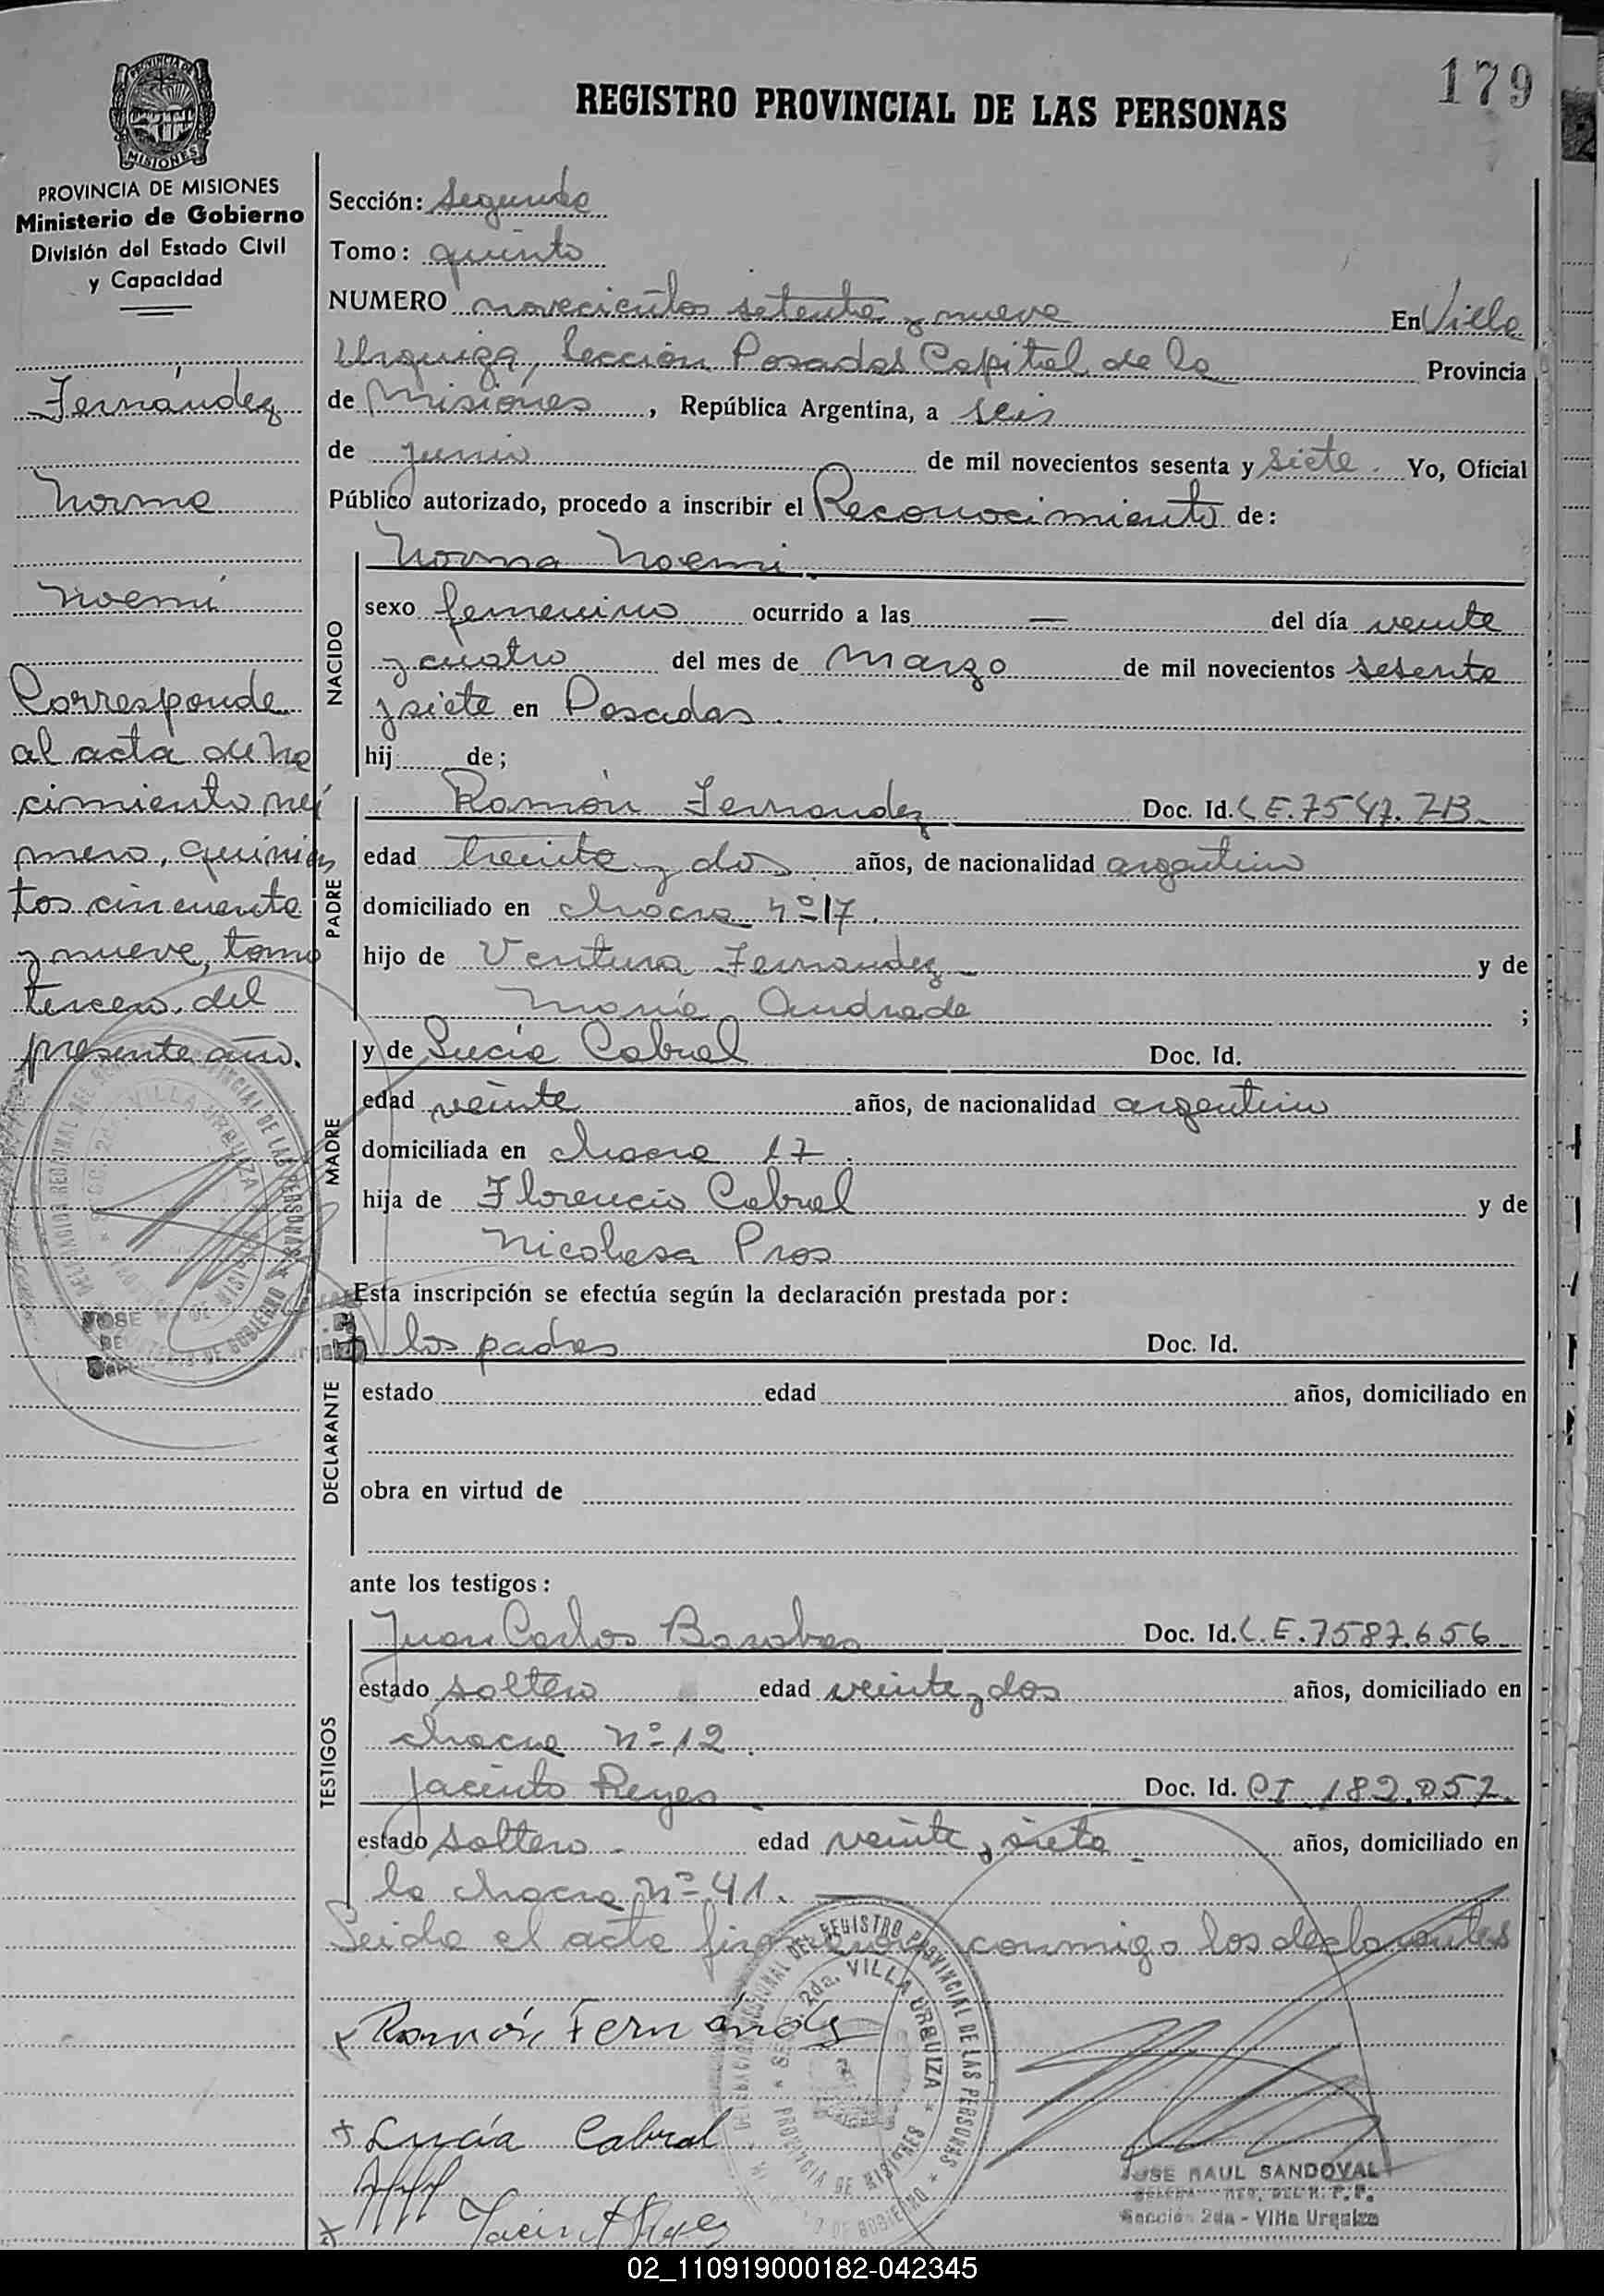 179
REGISTRO PROVINCIAL DE LAS PERSONAS
PROVINCIA DE MISIONES
PROVINCIA DE MISIONES
Ministerio de Gobierno
División del Estado Civil
y Capacidad
Fernández
Norma
Noemí
Corresponde
al acta de na
cimiento nú
mero, quinien
tos cincuenta
y nueve, tomo
tercero, del
presente año.
Sección: Segunda
Tomo: quinto
NUMERO novecientos setenta y nueve En Villa
Urquiza, Sección Posadas Capital de la Provincia
de Misiones, República Argentina, a seis
de junio de mil novecientos sesenta y siete. Yo, Oficial
Público autorizado, procedo a inscribir el Reconocimiento de:
NACIDO
Norma Noemi.
sexo femenino ocurrido a las — del día veinte
y cuatro del mes de Marzo de mil novecientos sesenta
y siete en Posadas.
hij de;
PADRE
Ramón Fernandez Doc. Id. L.E. 7547.713.
edad treinta y dos años, de nacionalidad argentino
domiciliado en chacra nº 17.
hijo de Ventura Fernandez y de
María Andrade ;
MADRE
y de Lucia Cabral Doc. Id.
edad veinte años, de nacionalidad argentino
domiciliada en chacra 17.
hija de Florencio Cabral y de
Nicolasa
Esta inscripción se efectúa según la declaración prestada por:
DECLARANTE
los padres Doc. Id.
estado edad años, domiciliado en
obra en virtud de
ante los testigos:
TESTIGOS
Juan Carlos Doc. Id. L.E. 7587.656
estado soltero edad veinte y dos años, domiciliado en
chacra nº 12.
Jacinto Reyes. Doc. Id. CI 182.057.
estado soltero edad veinte y siete años, domiciliado en
la chacra nº 41.
Leida el acta firman conmigo los declarantes
x Ramón Fernández
x Lucía Cabral
x Jacinto Reyes
DELEGACION REGIONAL DEL REGISTRO PROVINCIAL DE LAS PERSONAS
SEC. 2da. VILLA URQUIZA
PROVINCIA DE MISIONES
JOSE RAUL SANDOVAL
Sección 2da - Villa Urquiza
02_110919000182-042345